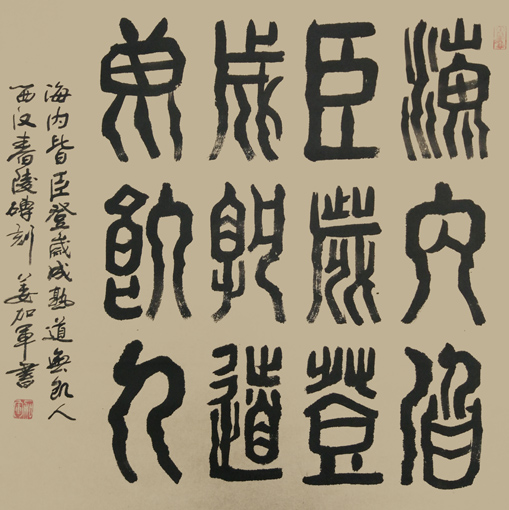 海内皆
臣歲登
成孰道
毋飢人
海内皆臣登歲成孰道無飢人
西汉春陵磚刻 姜加軍書